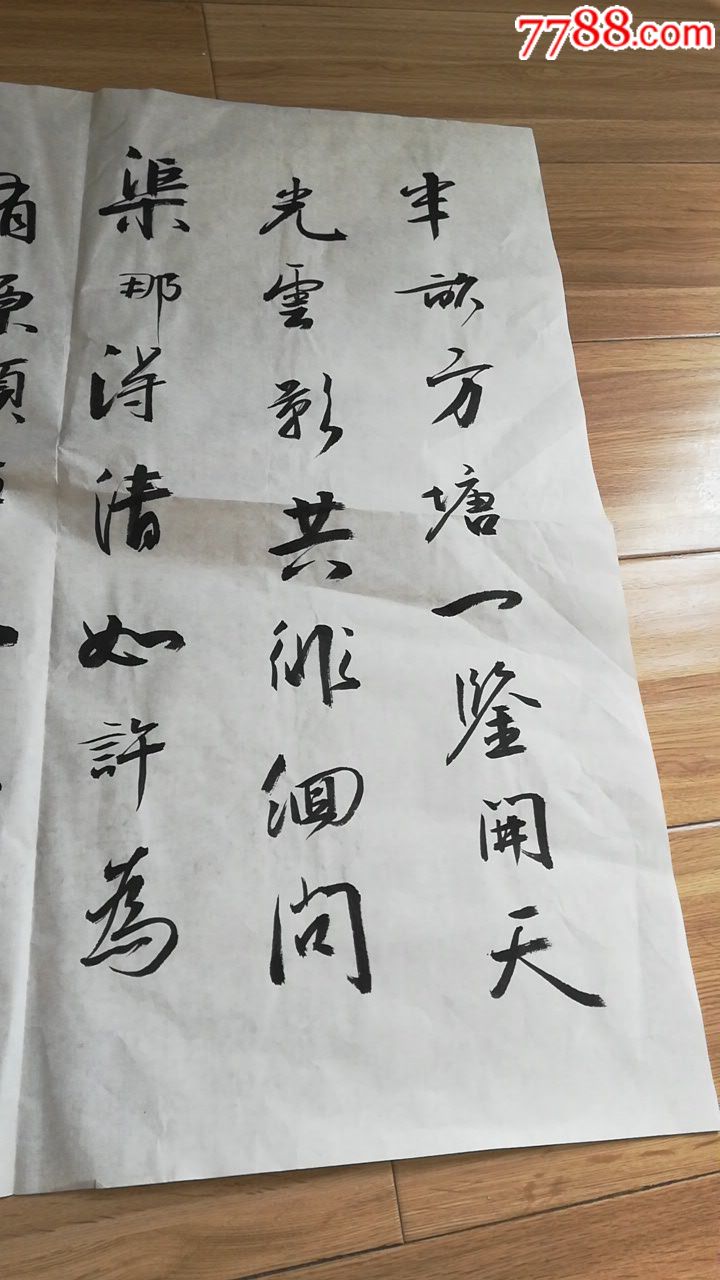 7788.com
半畝方塘一鑒開天
光雲影共徘徊問
渠那得清如許為
有源頭